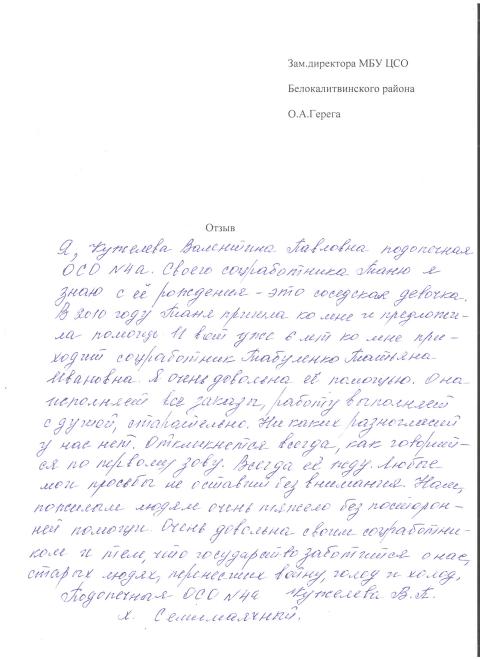 Зам.директора МБУ ЦСО
Белокалитвинского района
О.А.Герега
Отзыв
Я, Кужелева Валентина Павловна подопечная
ОСО №4а. Своего соцработника Таню я
знаю с её рождения – это соседская девочка.
В 2010 году Таня пришла ко мне и предложи-
ла помощь. И вот уже 6 лет ко мне при-
ходит соцработник Табуленко Татьяна
Ивановна. Я очень довольна её помощью. Она
исполняет все заказы, работу выполняет
с душой, старательно. Ни каких разногласий
у нас нет. Откликнется всегда, как говорит-
ся по первому зову. Всегда её жду. Любые
мои просьбы не оставит без внимания. Нам,
пожилым людям очень тяжело без посторон-
ней помощи. Очень довольна своим соцработни-
ком и тем, что государство заботится о нас,
старых людях, перенесших войну, голод и холод.
Подопечная ОСО №4а Кужелева В.П.
х. Семимаячный.